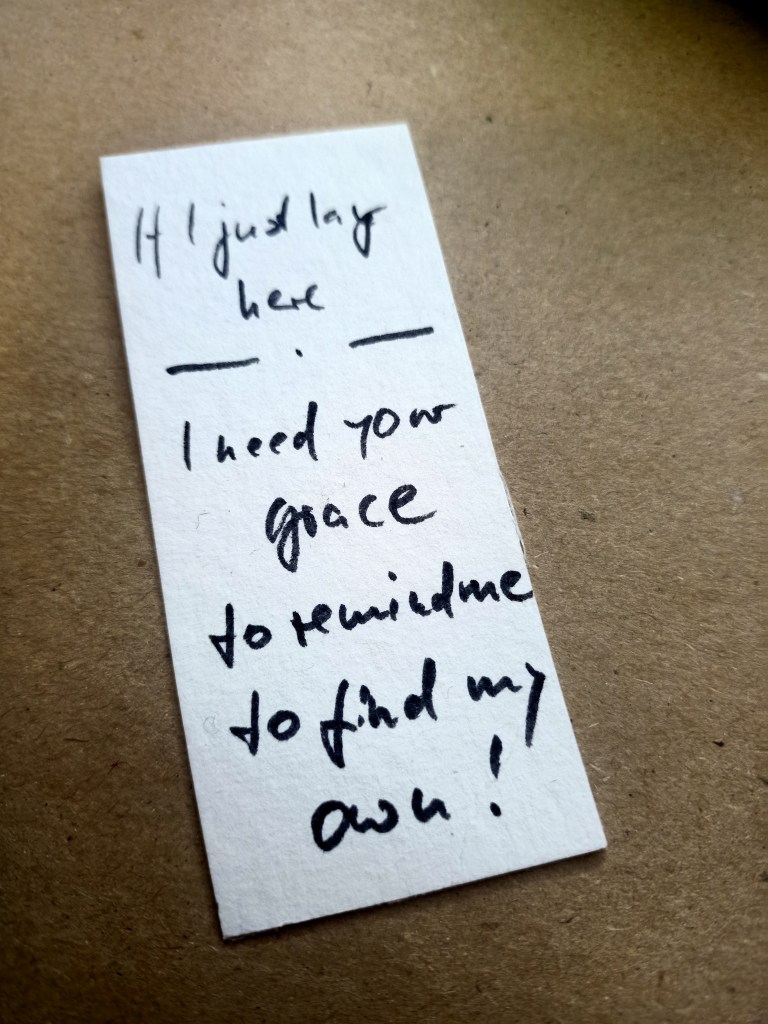 If I just lay
here
— . —
I need your
grace
to remind me
to find my
own!